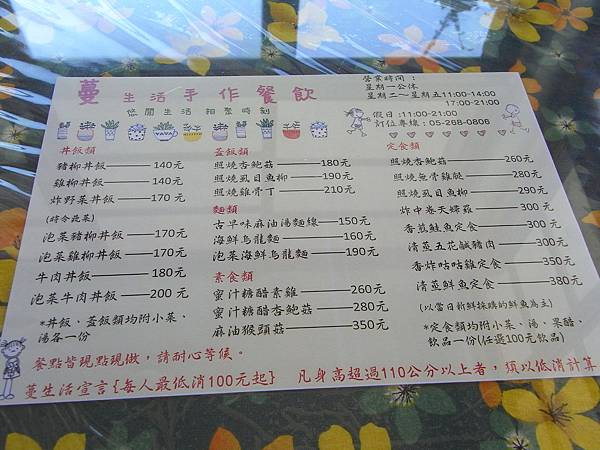 蔓 生活手作餐飲
悠閒生活 相聚時刻
VAVA
營業時間：
星期一公休
星期二～星期五11:00-14:00
17:00-21:00
假日:11:00-21:00
訂位專線：05-268-0806
丼飯類
豬柳丼飯——140元
雞柳丼飯——140元
炸野菜丼飯——170 元
(時令蔬菜)
泡菜豬柳丼飯——170元
泡菜雞柳丼飯——170元
牛肉丼飯——180元
泡菜牛肉丼飯——200 元
*丼飯、蓋飯類均附小菜、
湯各一份
蓋飯類
照燒杏鮑菇——180元
照燒虱目魚柳——190元
照燒雞骨丁——210元
麵類
古早味麻油湯麵線——150元
海鮮烏龍麵——160元
泡菜海鮮烏龍麵——190元
素食類
蜜汁糖醋素雞——260元
蜜汁糖醋杏鮑菇——280元
麻油猴頭菇——350元
定食類
照燒杏鮑菇——260元
照燒無骨雞腿——280元
照燒虱目魚柳——290元
炸中卷天婦羅——300 元
香煎鮭魚定食——300元
清蒸五花鹹豬肉——300元
香炸咕咕雞定食——350元
清蒸鮮魚定食——380元
(以當日新鮮採購的鮮魚為主)
*定食類均附小菜、湯、果醋、
飲品一份(任選100元飲品)
餐點皆現點現做，請耐心等候。
蔓生活宣言{每人最低消100元起} 凡身高超過110公分以上者，須以低消計算